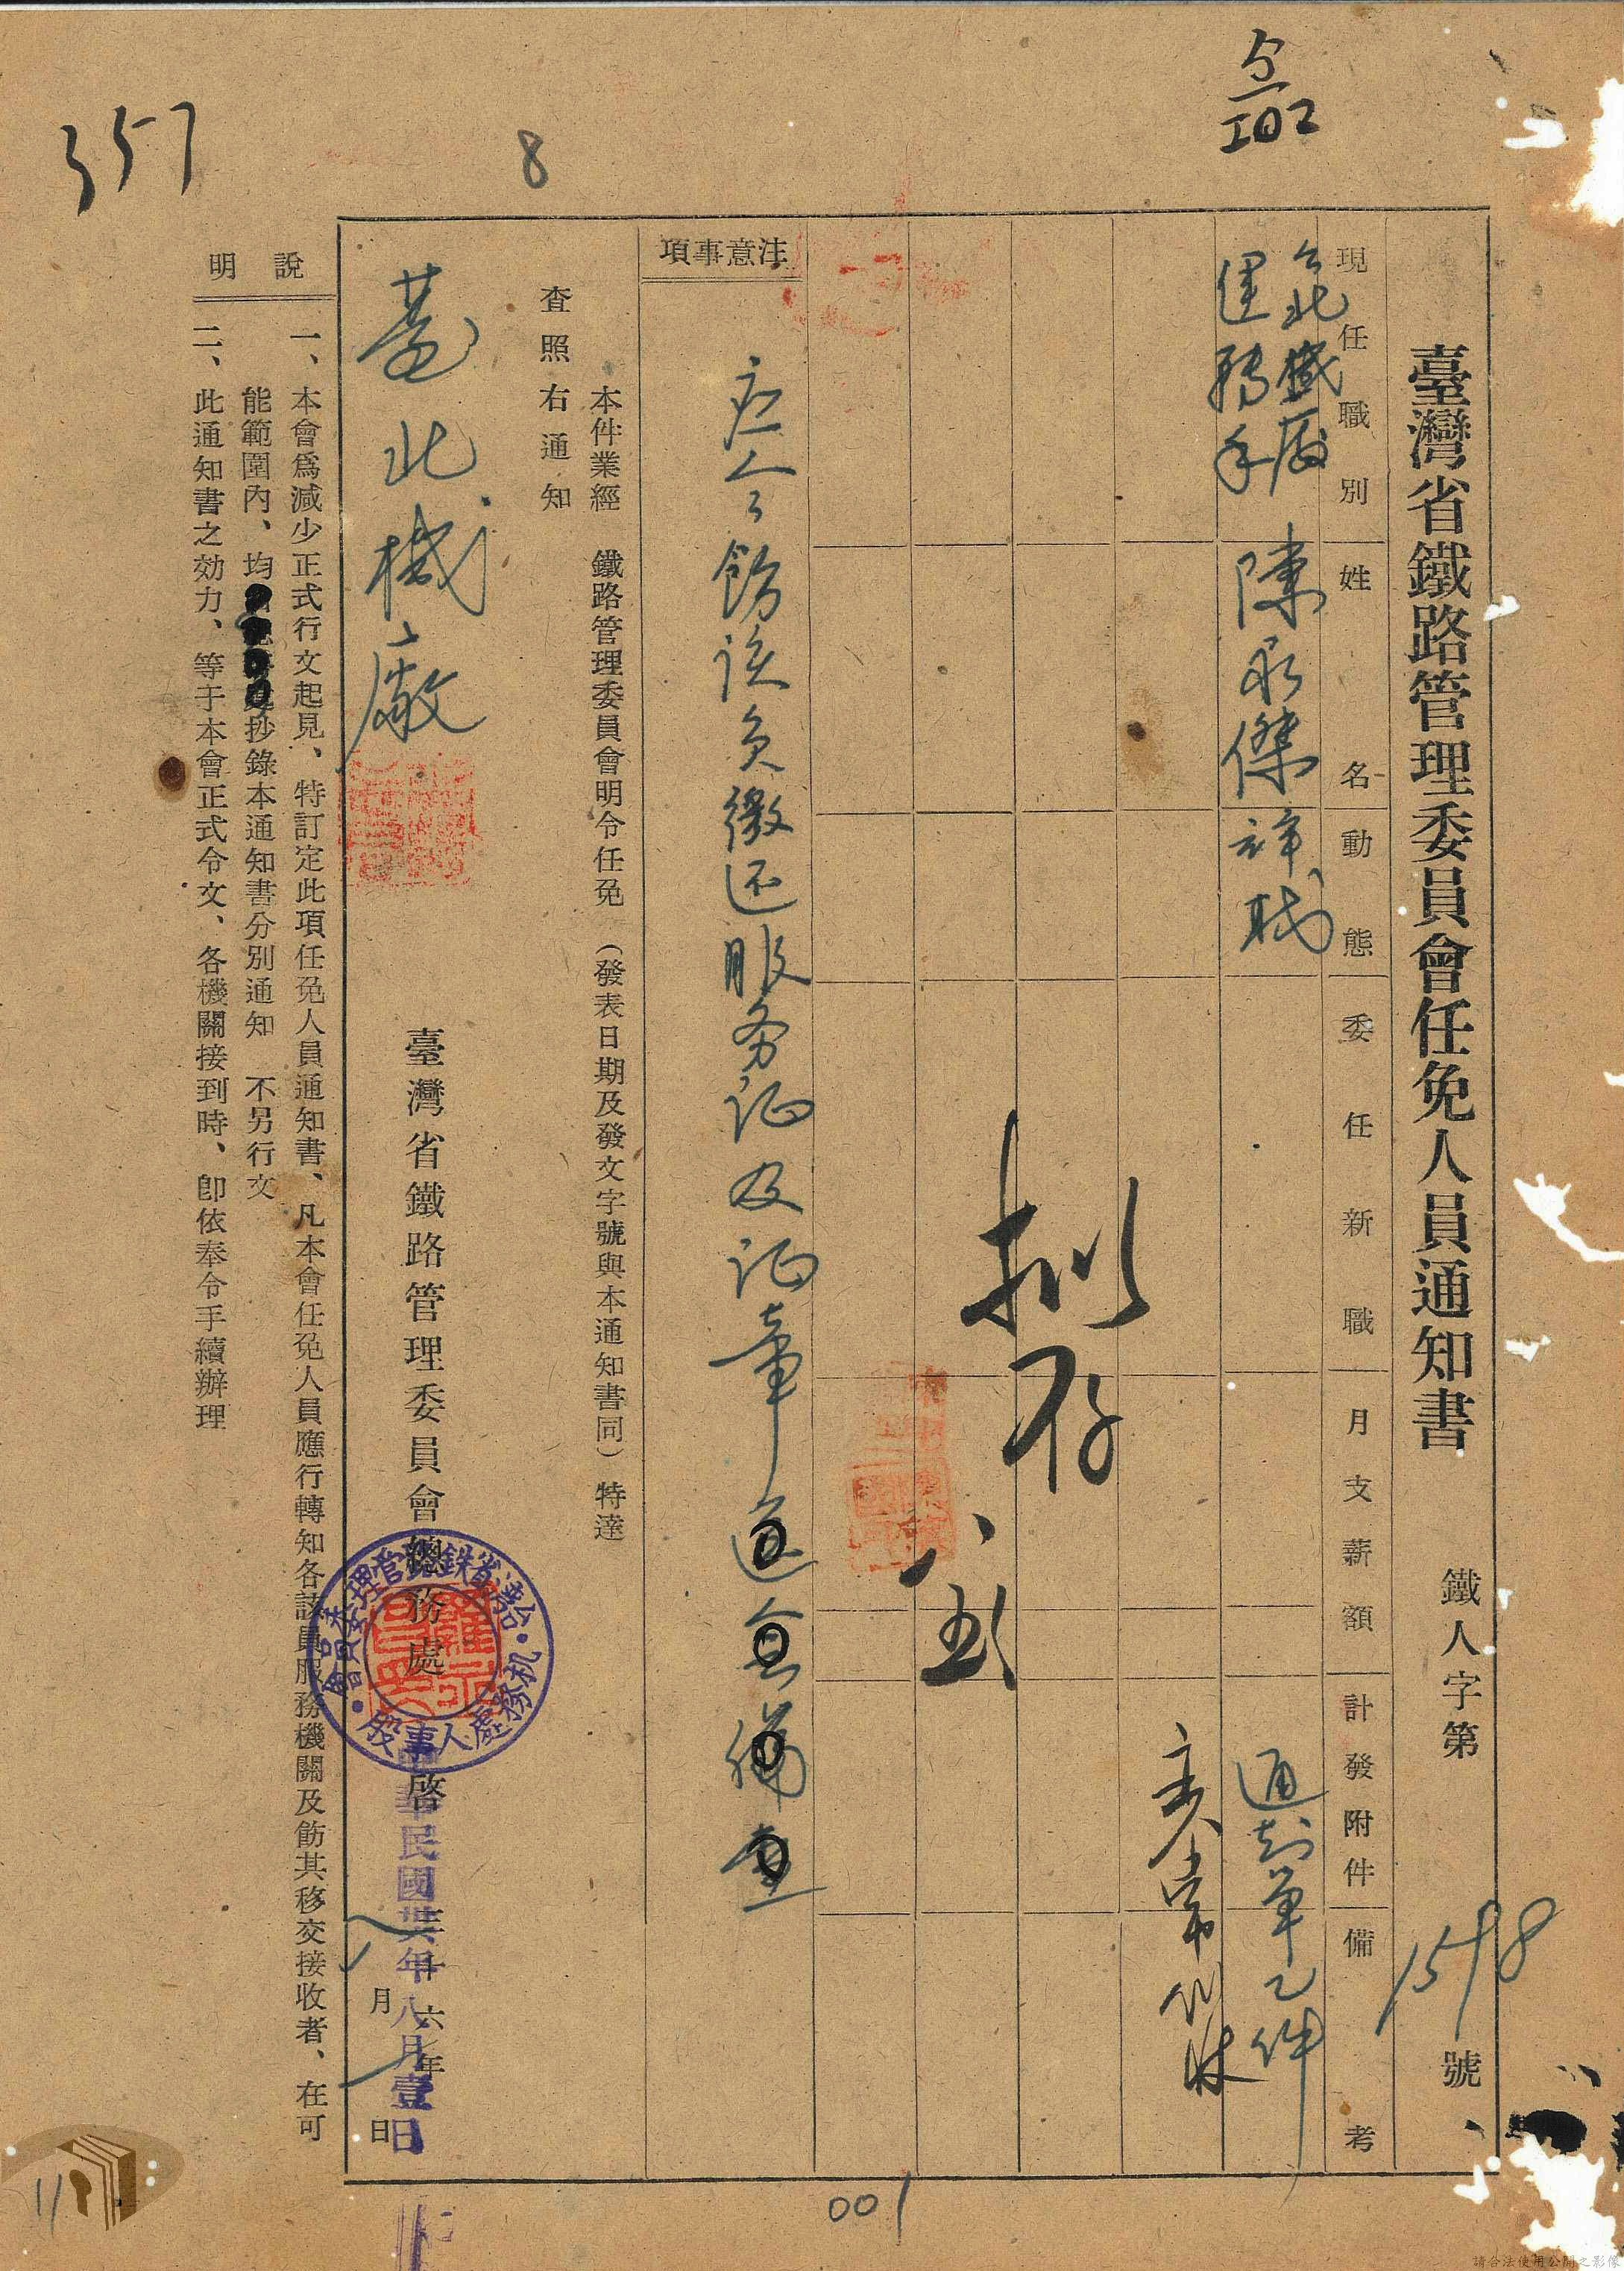 臺灣省鐵路管理委員會任免人員通知書
鐵人字第1598號
現任職別
姓名
動態
委任新職
月支薪額
計發附件
備考
台北機廠
運轉手
陳永傑
辞職
通知單乙件
擬存
八
注意事項
应令飭該員繳还服务证及证章
本件業經 鐵路管理委員會明令任免 (發表日期及發文字號與本通知書同) 特達
查照右通知
臺北機廠
臺灣省鐵路管理委員會總務處 啓
六年 月 日
中華民國卅六年八月壹日
台灣省鉄路管理委員會
机務處人事股
說明
一、本會爲減少正式行文起見、特訂定此項任免人員通知書、凡本會任免人員應行轉知各該員服務機關及飭其移交接收者、在可
能範圍內、均 抄錄本通知書分別通知 不另行文
二、此通知書之効力、等于本會正式令文、各機關接到時、卽依奉令手續辦理
357
8
001
11
請合法使用公開之影像